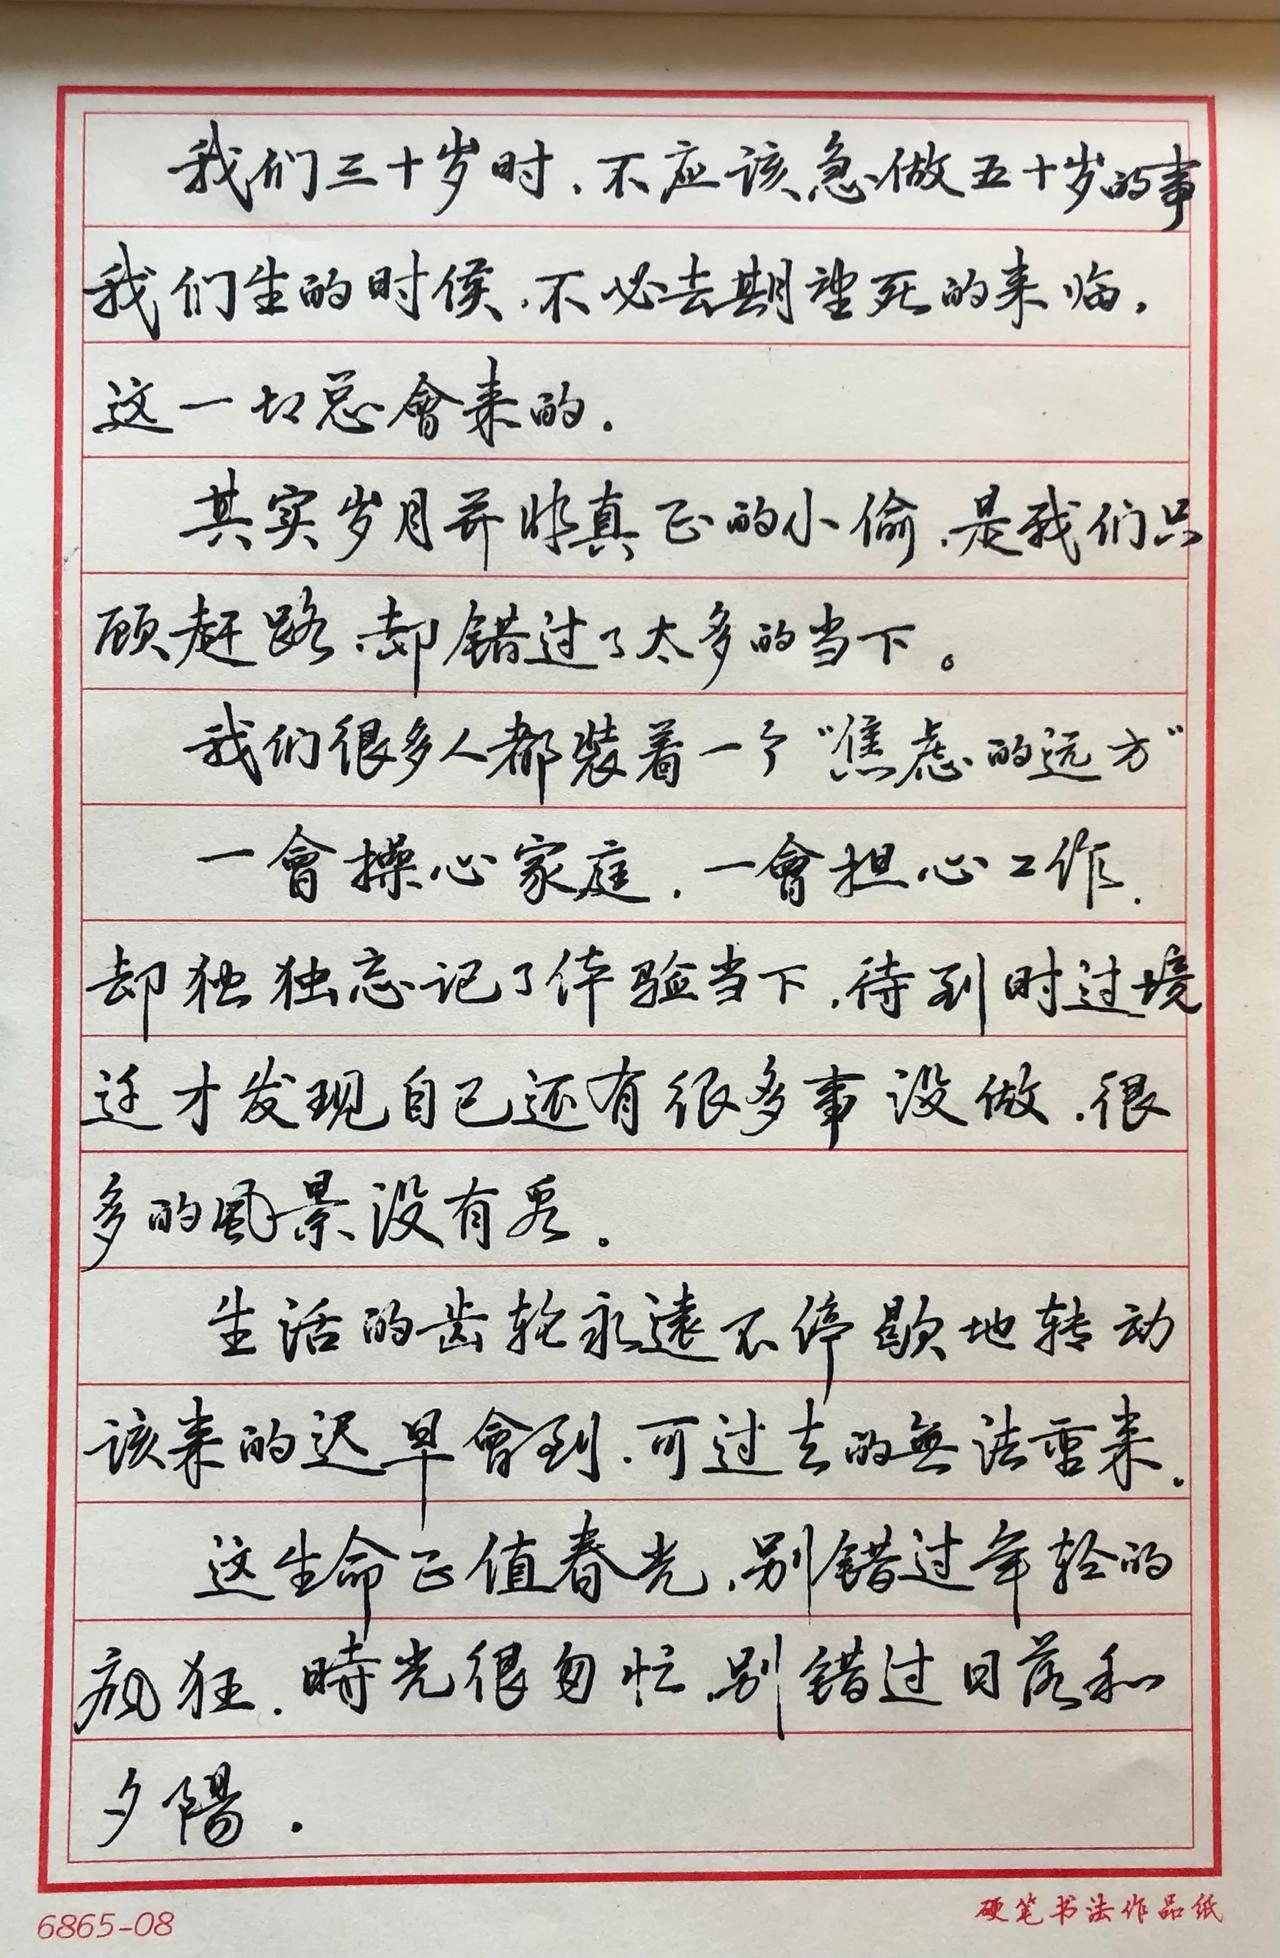 我们三十岁时,不应该急做五十岁的事
我们生的时候,不必去期望死的来临,
这一切总會来的.
其实岁月并非真正的小偷,是我们只
顾赶路,却错过了太多的当下。
我们很多人都装着一个“焦虑的远方”
一會操心家庭,一會担心工作.
却独独忘记了体验当下,待到时过境
迁才发现自己还有很多事没做,很
多的風景没有看.
生活的齿轮永遠不停歇地转动
该来的迟早會到,可过去的無法重来.
这生命正值春光,别错过年轻的
疯狂.時光很匆忙,别错过日落和
夕陽.
6865-08
硬笔书法作品纸